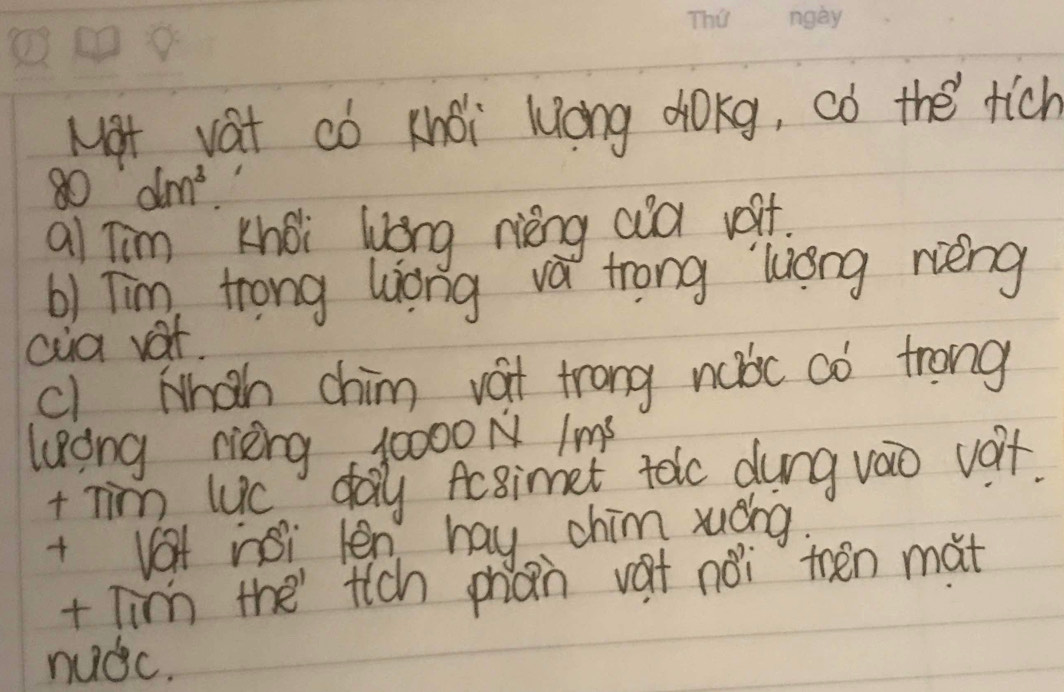 Thứ ngày
Một vật có khối lượng 40kg, có thể tích
80 dm³.
a) Tìm khối lượng riêng của vật.
b) Tìm trọng lượng và trọng lượng riêng
của vật.
c) Nhấn chìm vật trong nước có trọng
lượng riêng 10000 N /m³
+ Tìm lực đẩy Acsimet tác dụng vào vật.
+ Vật nổi lên hay chìm xuống.
+ Tìm thể tích phần vật nổi trên mặt
nước.